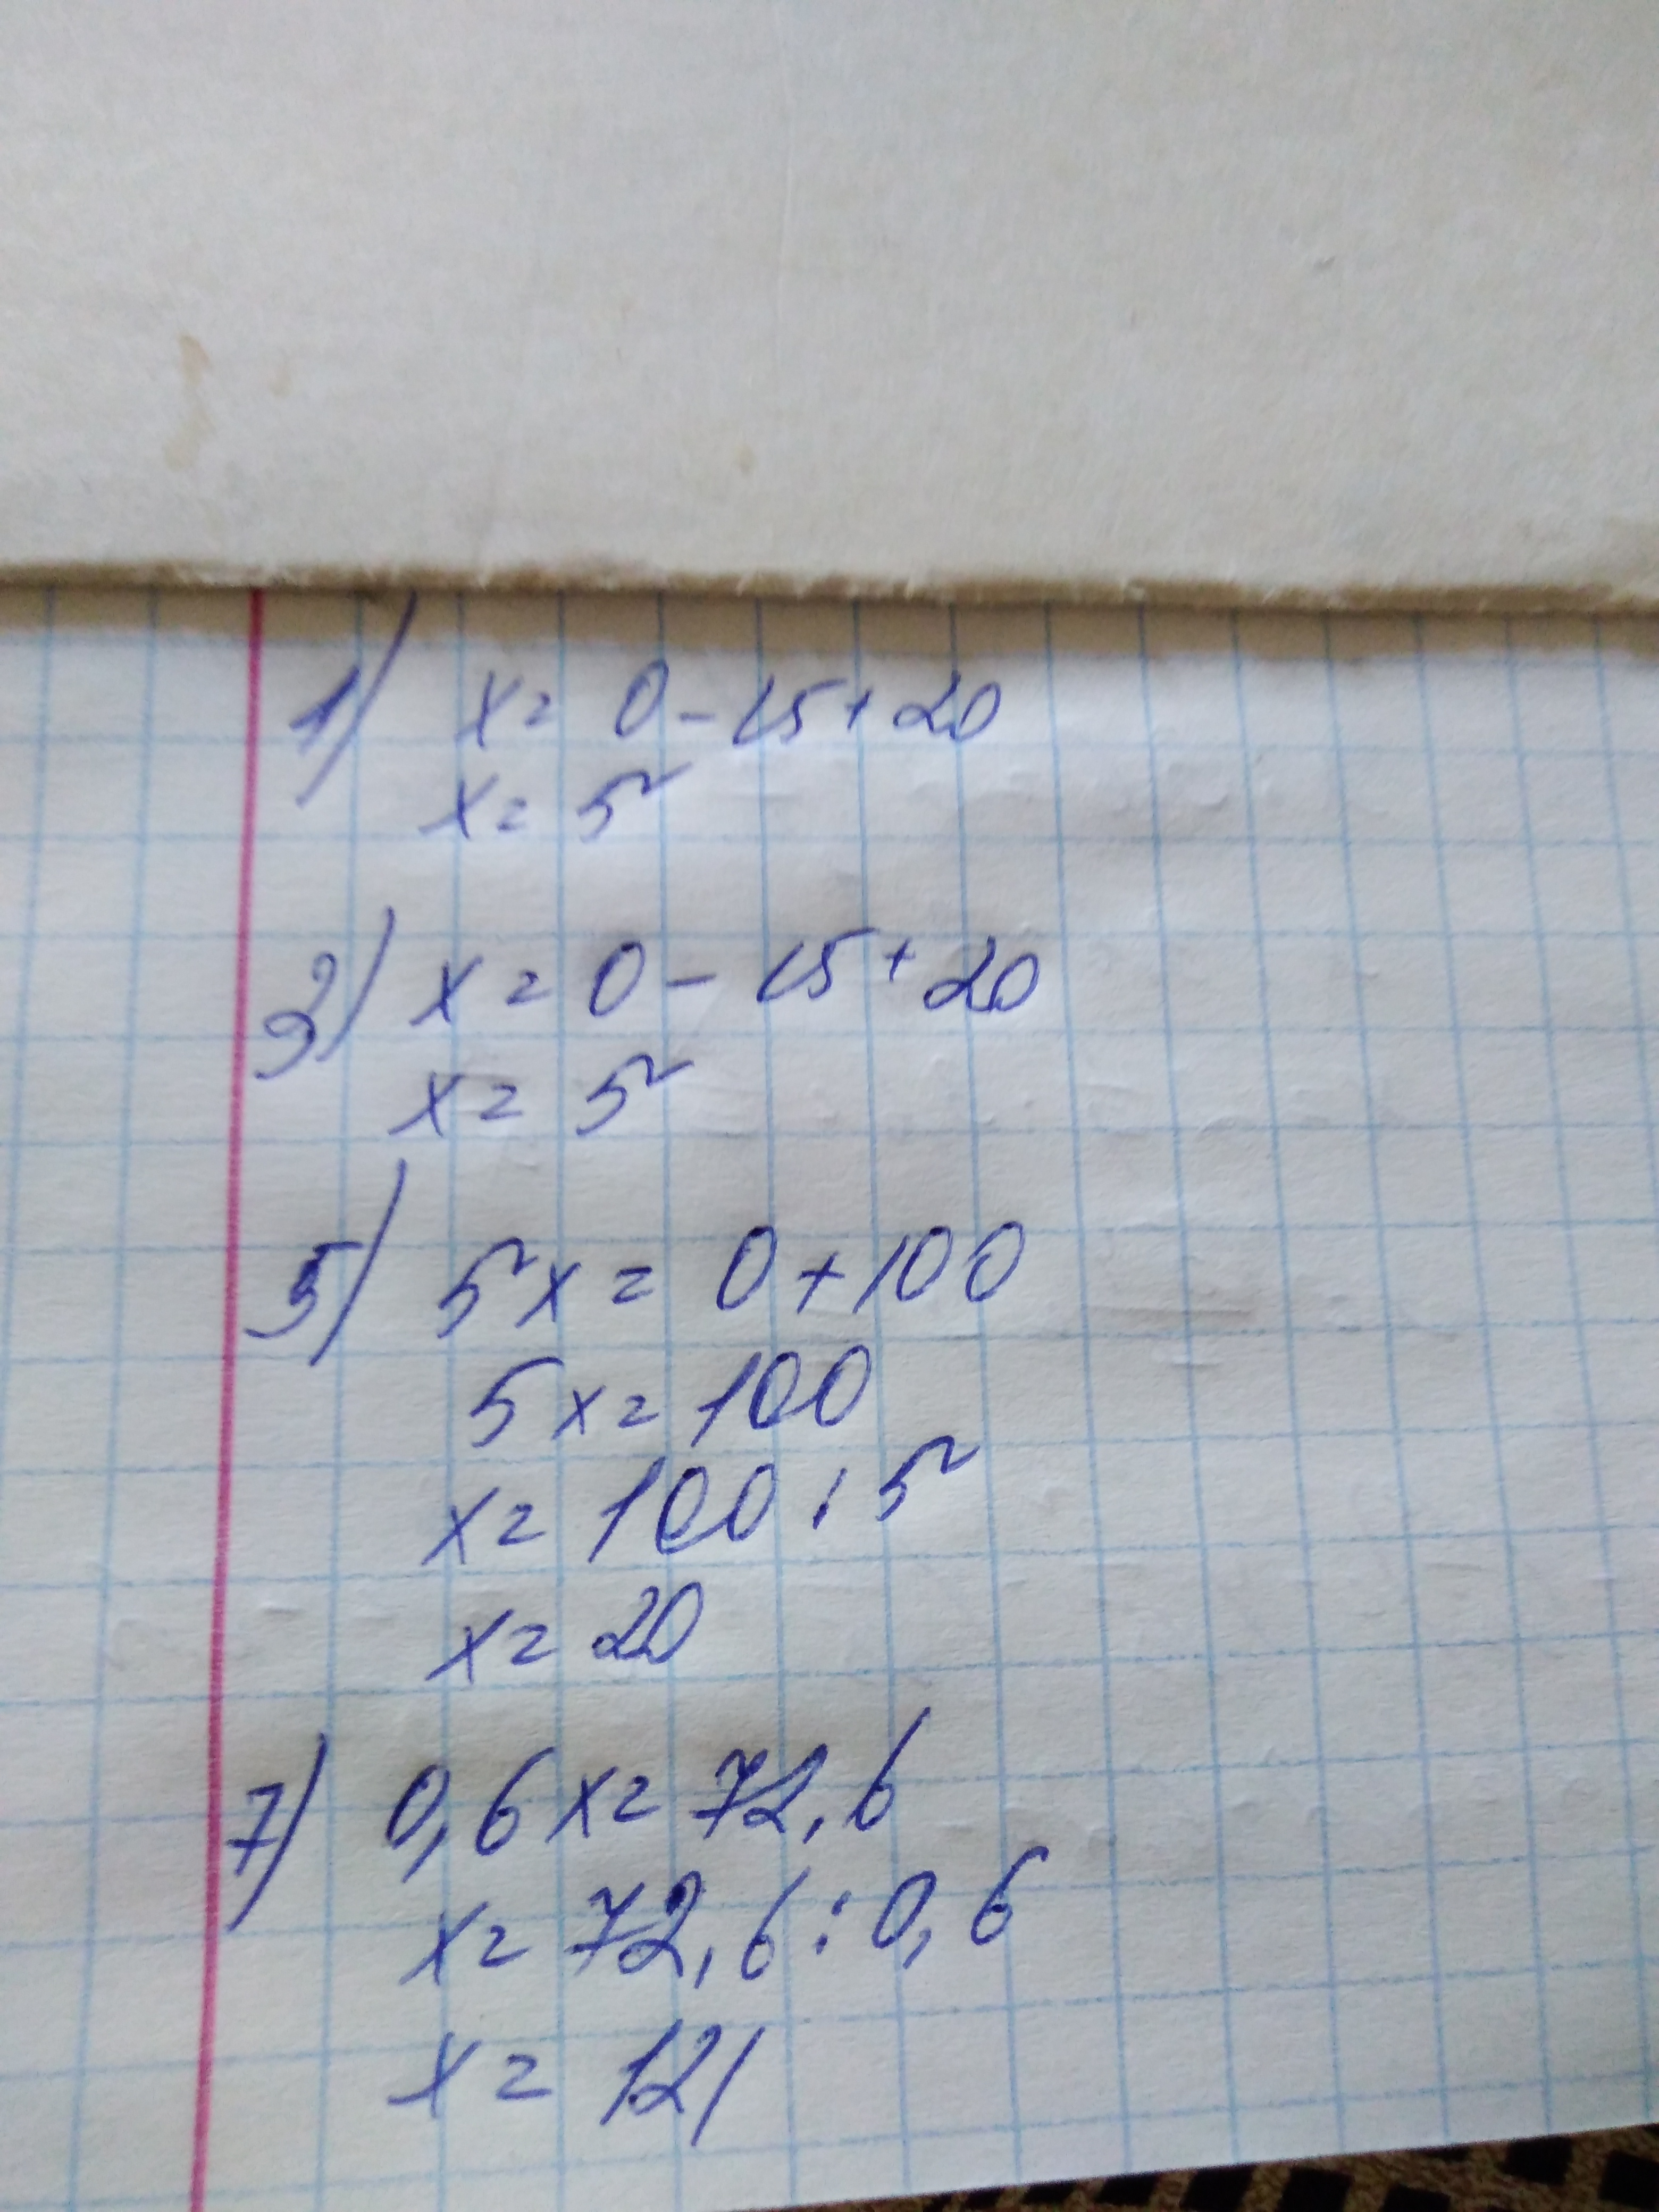 1) x = 0 - 15 + 20
x = 5
3) x = 0 - 15 + 20
x = 5
5) 5x = 0 + 100
5x = 100
x = 100 : 5
x = 20
7) 0,6x = 72,6
x = 72,6 : 0,6
x = 121